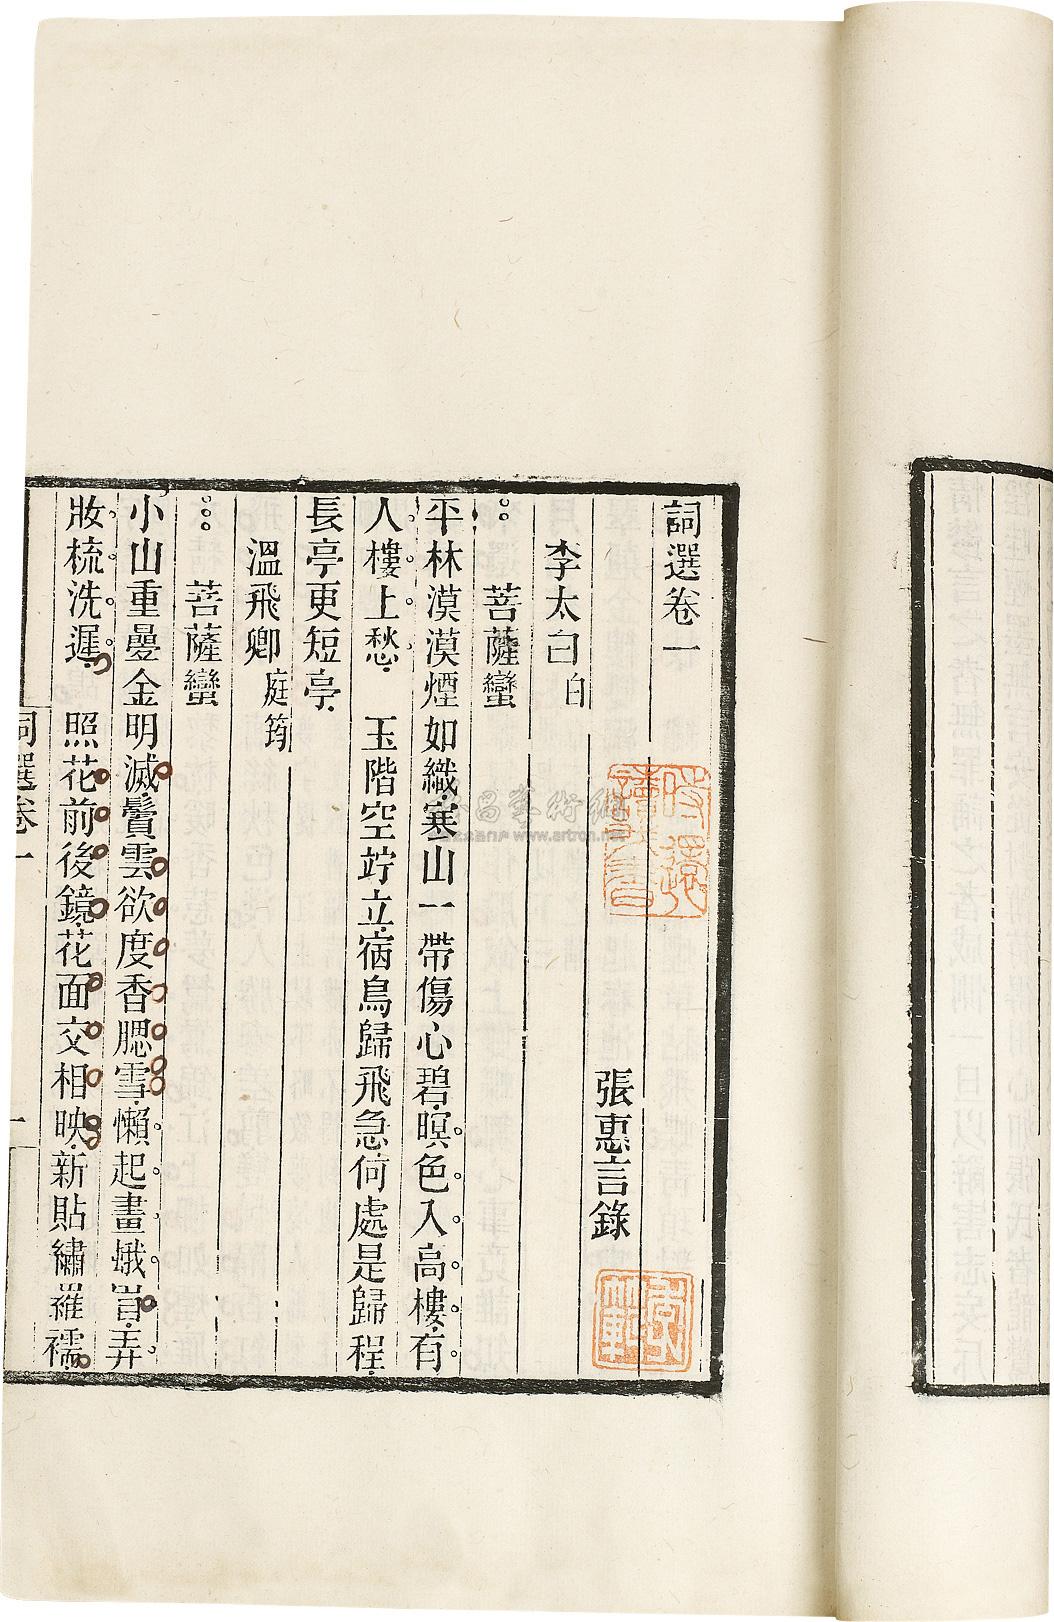 詞選卷一
張惠言錄
李太白白
菩薩蠻
平林漠漠煙如織寒山一帶傷心碧暝色入高樓有
人樓上愁 玉階空竚立宿鳥歸飛急何處是歸程
長亭更短亭
溫飛卿庭筠
菩薩蠻
小山重疊金明滅鬢雲欲度香腮雪懶起畫蛾眉弄
妝梳洗遲 照花前後鏡花面交相映新貼繡羅襦
詞選卷一
一
www.artron.net